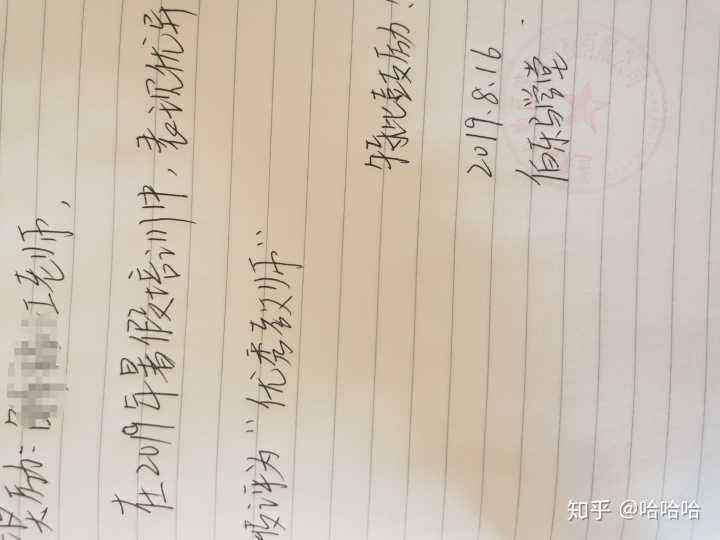 奖励：王老师，
在2019年暑假培训中，表现优异
被评为“优秀教师”
特此鼓励、
2019.8.16
伯乐学堂
知乎 @哈哈哈